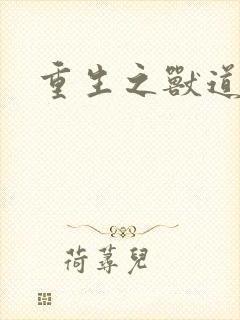 重生之獸道
荷蕁兒